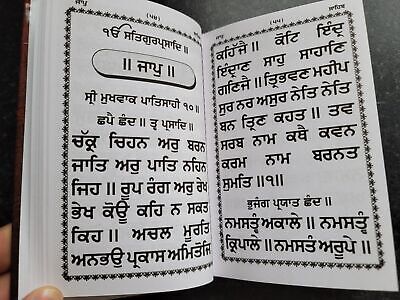 ਜਾਪੁ (੫੪)
ੴ ਸਤਿਗੁਰਪ੍ਰਸਾਦਿ ॥
॥ ਜਾਪੁ ॥
ਸ੍ਰੀ ਮੁਖਵਾਕ ਪਾਤਿਸਾਹੀ ੧੦ ॥
ਛਪੈ ਛੰਦ ॥ ਤ੍ਵ ਪ੍ਰਸਾਦਿ ॥
ਚੱਕ੍ਰ ਚਿਹਨ ਅਰੁ ਬਰਨ
ਜਾਤਿ ਅਰੁ ਪਾਤਿ ਨਹਿਨ
ਜਿਹ ॥ ਰੂਪ ਰੰਗ ਅਰੁ ਰੇਖ
ਭੇਖ ਕੋਊ ਕਹਿ ਨ ਸਕਤ
ਕਿਹ ॥ ਅਚਲ ਮੂਰਤਿ
ਅਨਭਉ ਪ੍ਰਕਾਸ ਅਮਿਤੋਜਿ
ਜਾਪੁ (੫੫) ਸਾਹਿਬ
ਕਹਿੱਜੈ ॥ ਕੋਟਿ ਇੰਦ੍ਰ
ਇੰਦ੍ਰਾਣ ਸਾਹੁ ਸਾਹਾਣਿ
ਗਣਿਜੈ ॥ ਤ੍ਰਿਭਵਣ ਮਹੀਪ
ਸੁਰ ਨਰ ਅਸੁਰ ਨੇਤਿ ਨੇਤਿ
ਬਨ ਤ੍ਰਿਣ ਕਹਤ ॥ ਤਵ
ਸਰਬ ਨਾਮ ਕਥੈ ਕਵਨ
ਕਰਮ ਨਾਮ ਬਰਨਤ
ਸੁਮਤਿ ॥੧॥
ਭੁਜੰਗ ਪ੍ਰਯਾਤ ਛੰਦ ॥
ਨਮਸਤ੍ਵੰ ਅਕਾਲੇ ॥ ਨਮਸਤ੍ਵੰ
ਕ੍ਰਿਪਾਲੇ ॥ ਨਮਸਤੰ ਅਰੂਪੇ ॥